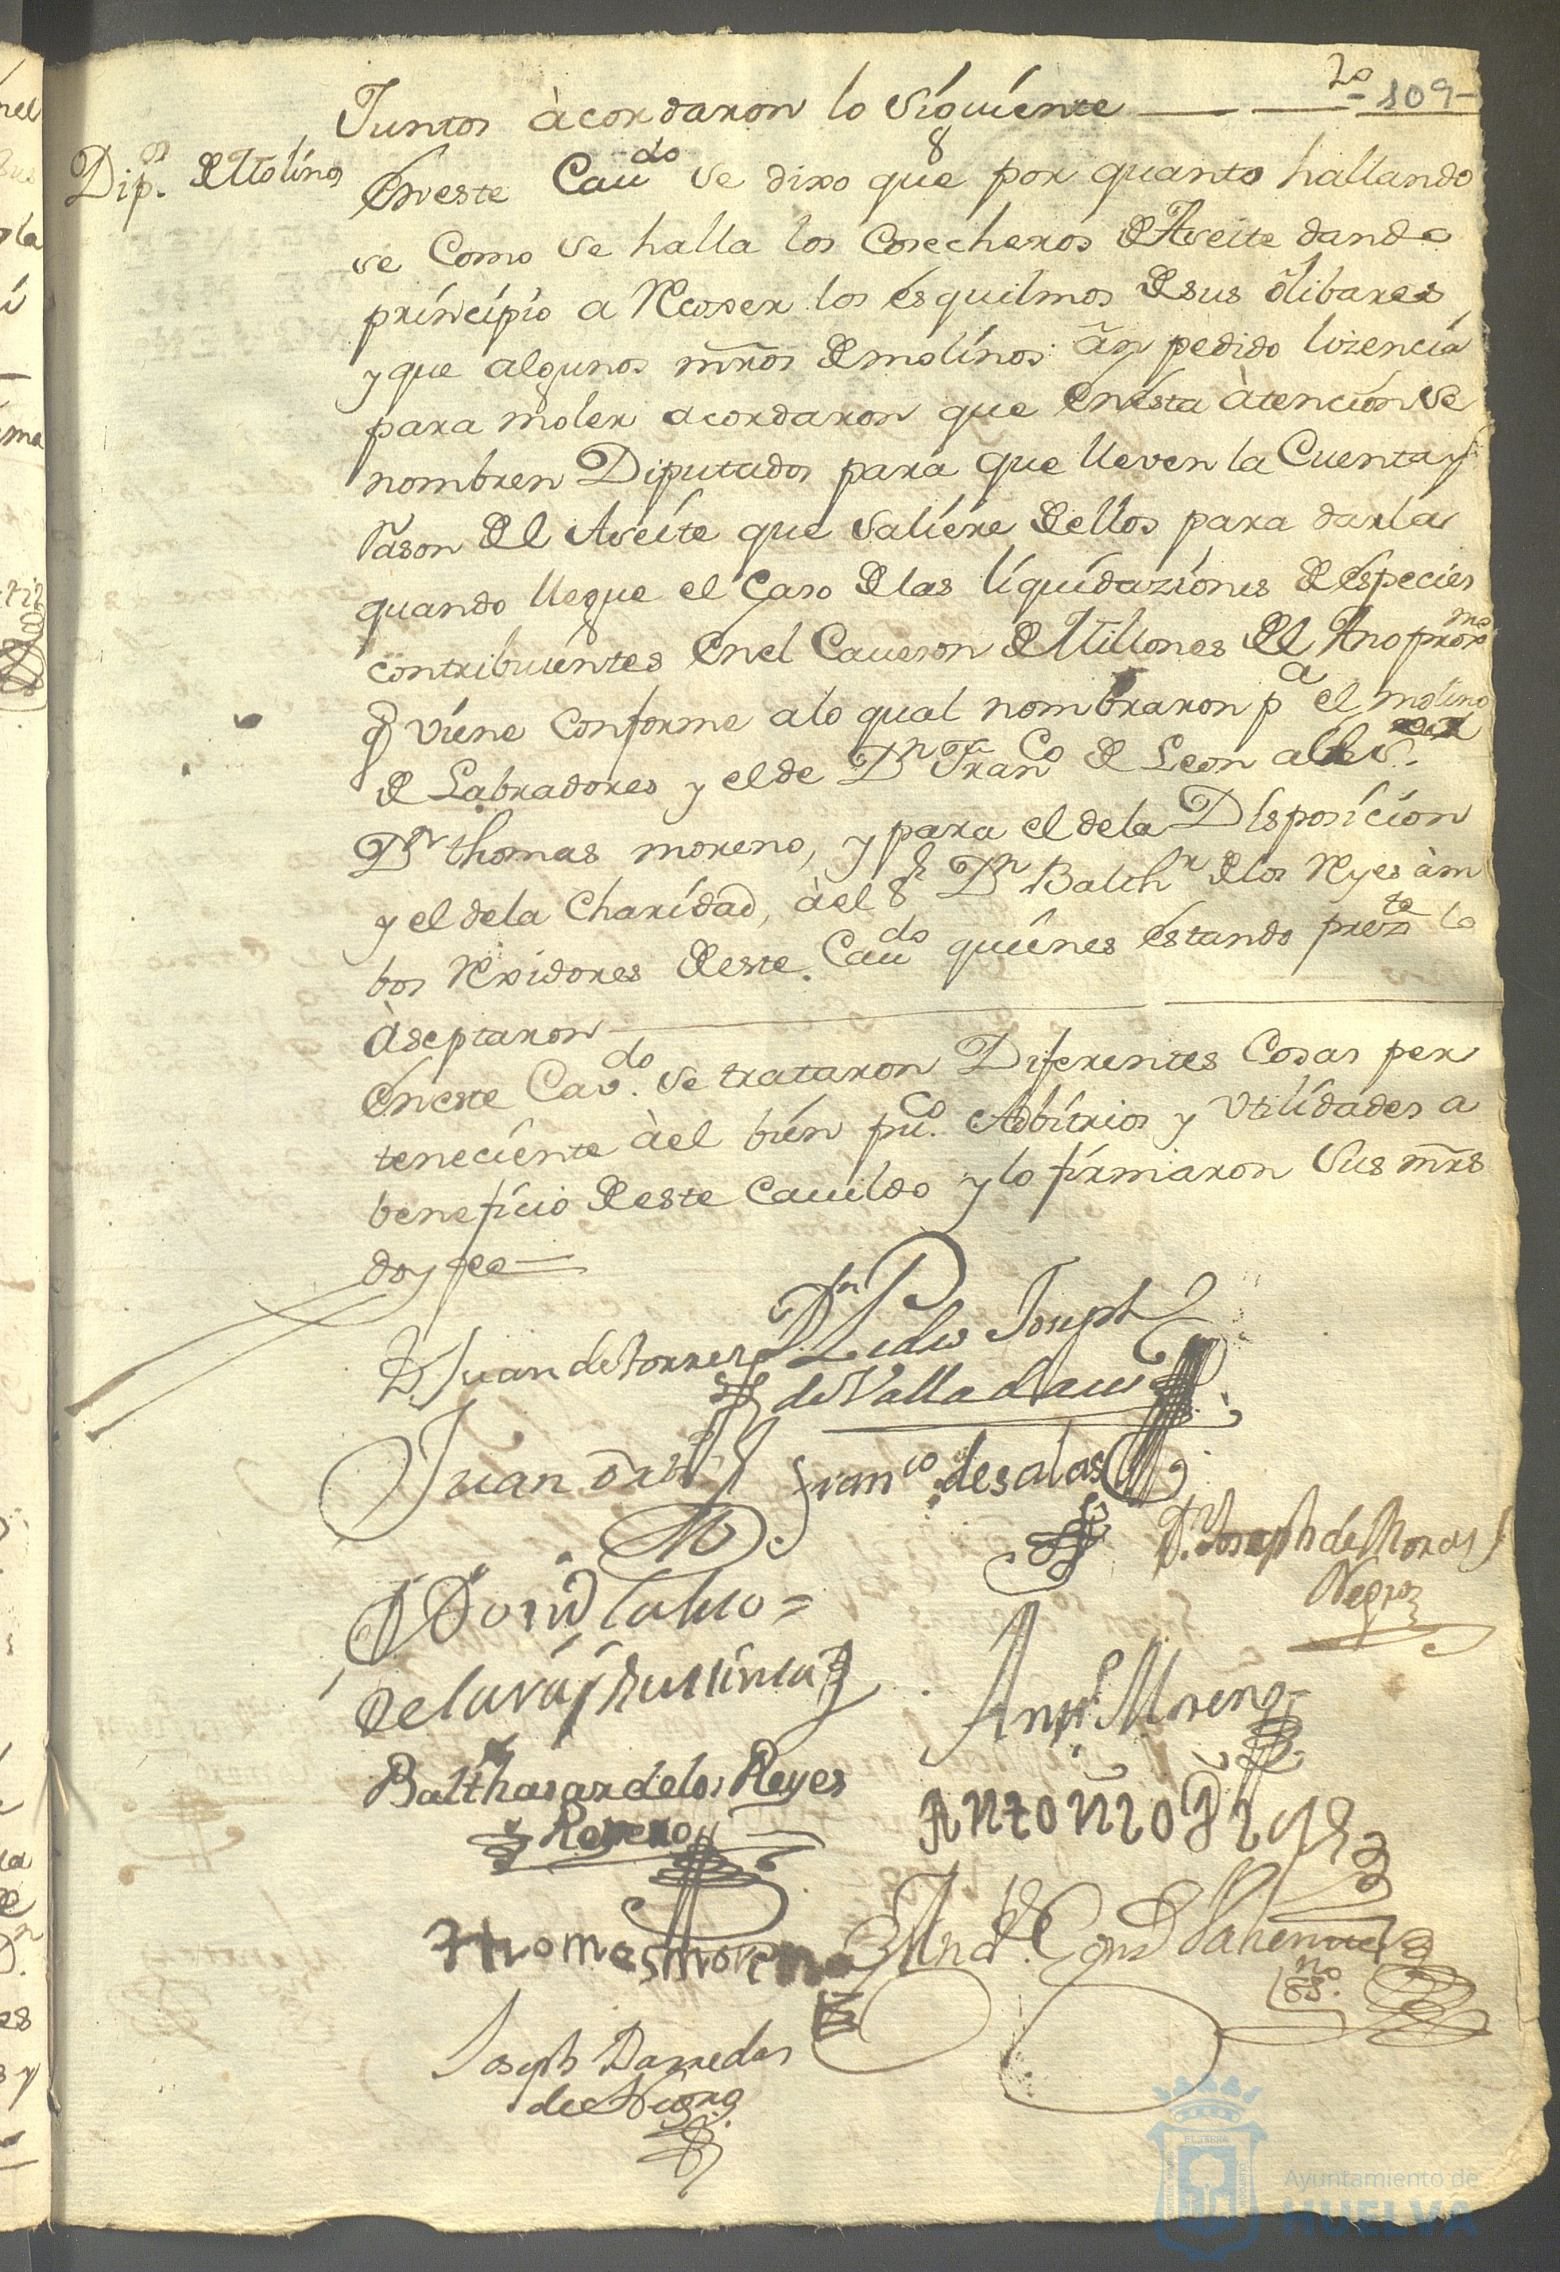 20
-109-
Juntos àcordaron lo siguiente
Dip.os de Molinos
Eneste Caudo se dixo que por quanto hallando
se Como se halla los Cosecheros de Aseite dando
principio a Recoxer los esquilmos de sus olibares
y que algunos mrõs de molinos ãn pedido lizencia
para moler acordaron que Enésta àtencion se
nombren Diputados para que lleven la Cuenta y
Rason del Aseite que saliere de ellos para darla
quando llegue el Caso de las liquidaziones de especies
contribuientes Enel Caueson de Millones del Año proxmo
q viene Conforme alo qual nombraron pa el molino
de Labradores y el de Dn Franco de Leon al Sr
Dn thomas moreno, y para el dela Disposicion
y el dela Charidad, àel Sr Dn Balthr de los Reyes àm
bos Rexidores de este Caudo quiénes éstando prezte lo
àseptaron
Eneste Cavdo se trataron Diferentes Cosas per
teneciente àel bién puco Adbitrios y Utilidades a
beneficio de este Cauildo y lo firmaron Sus mrs
doy fee
D Juan de Torres
Dn Pedro Joseph
de Valladares
Juan
Franco de salas
D. Joseph de Moras
Negro
de Lara y
Anto Moreno
Balthasar de los Reyes
Romero
Antonio
Thomas moreno
Joseph